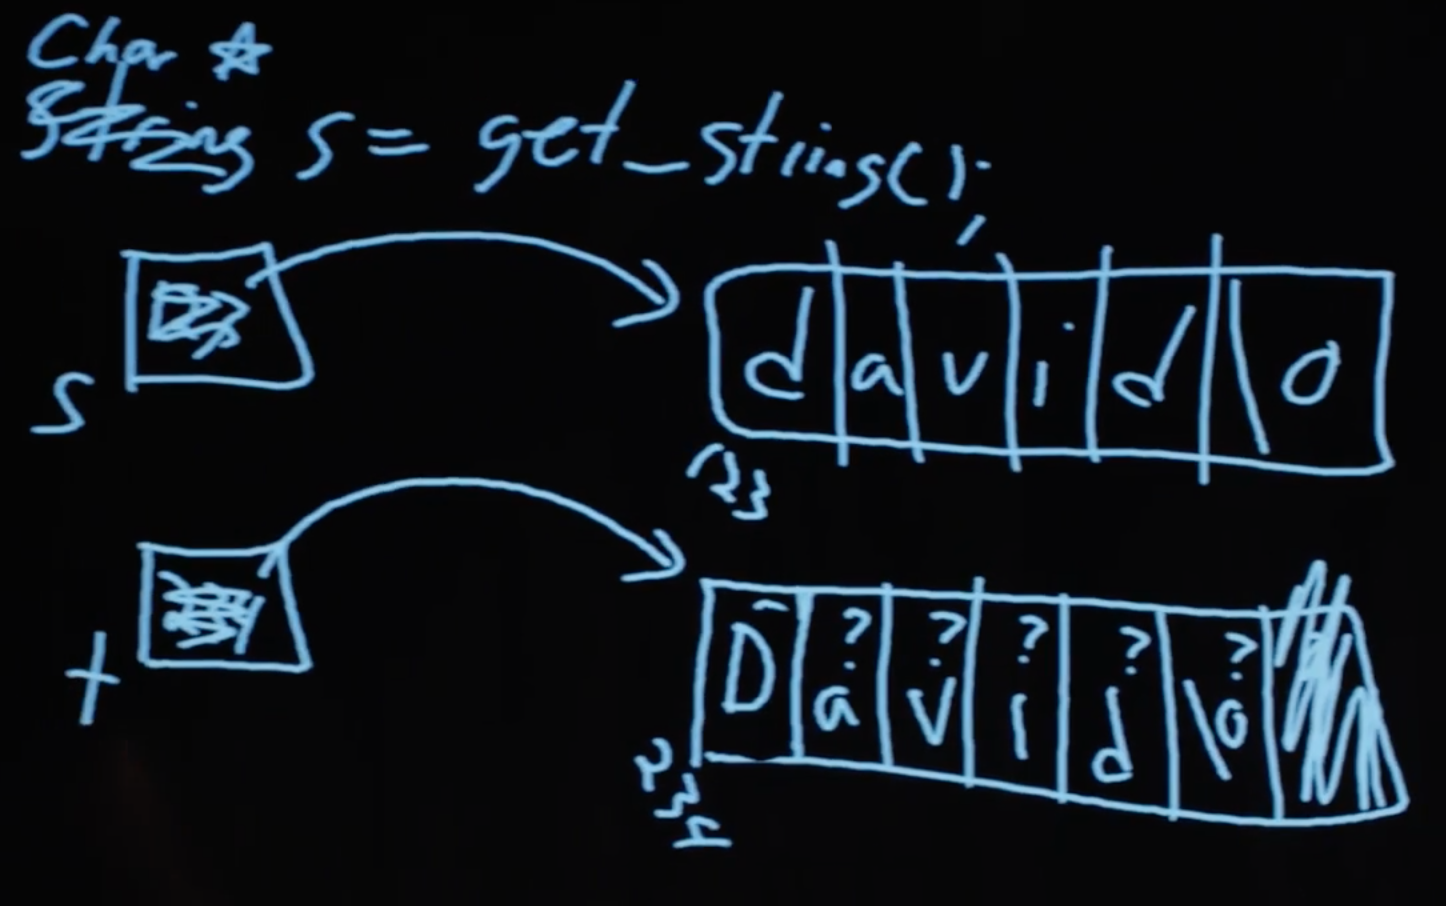 Char *
String s = get_string();
s
d a v i d \0
123
t
D a v i d \0
? ? ? ? ?
234